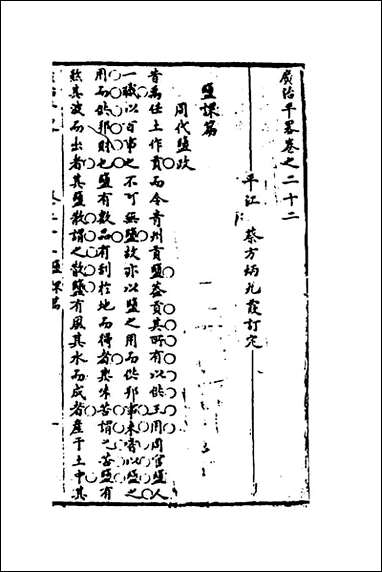 廣治平畧卷之二十二
平江 蔡方炳九霞訂定
鹽課篇
周代鹽政
昔禹任土作貢而令青州貢鹽蓋貢其所有以供王用周官鹽人
一職以百事之不可無鹽故亦以鹽之用而供邦事未嘗以鹽之
用而供邦財也鹽有數品有刮於地而得者其味苦謂之苦鹽有
熬其波而出者其鹽散謂之散鹽有風其水而成者產于土中其
鹽課篇